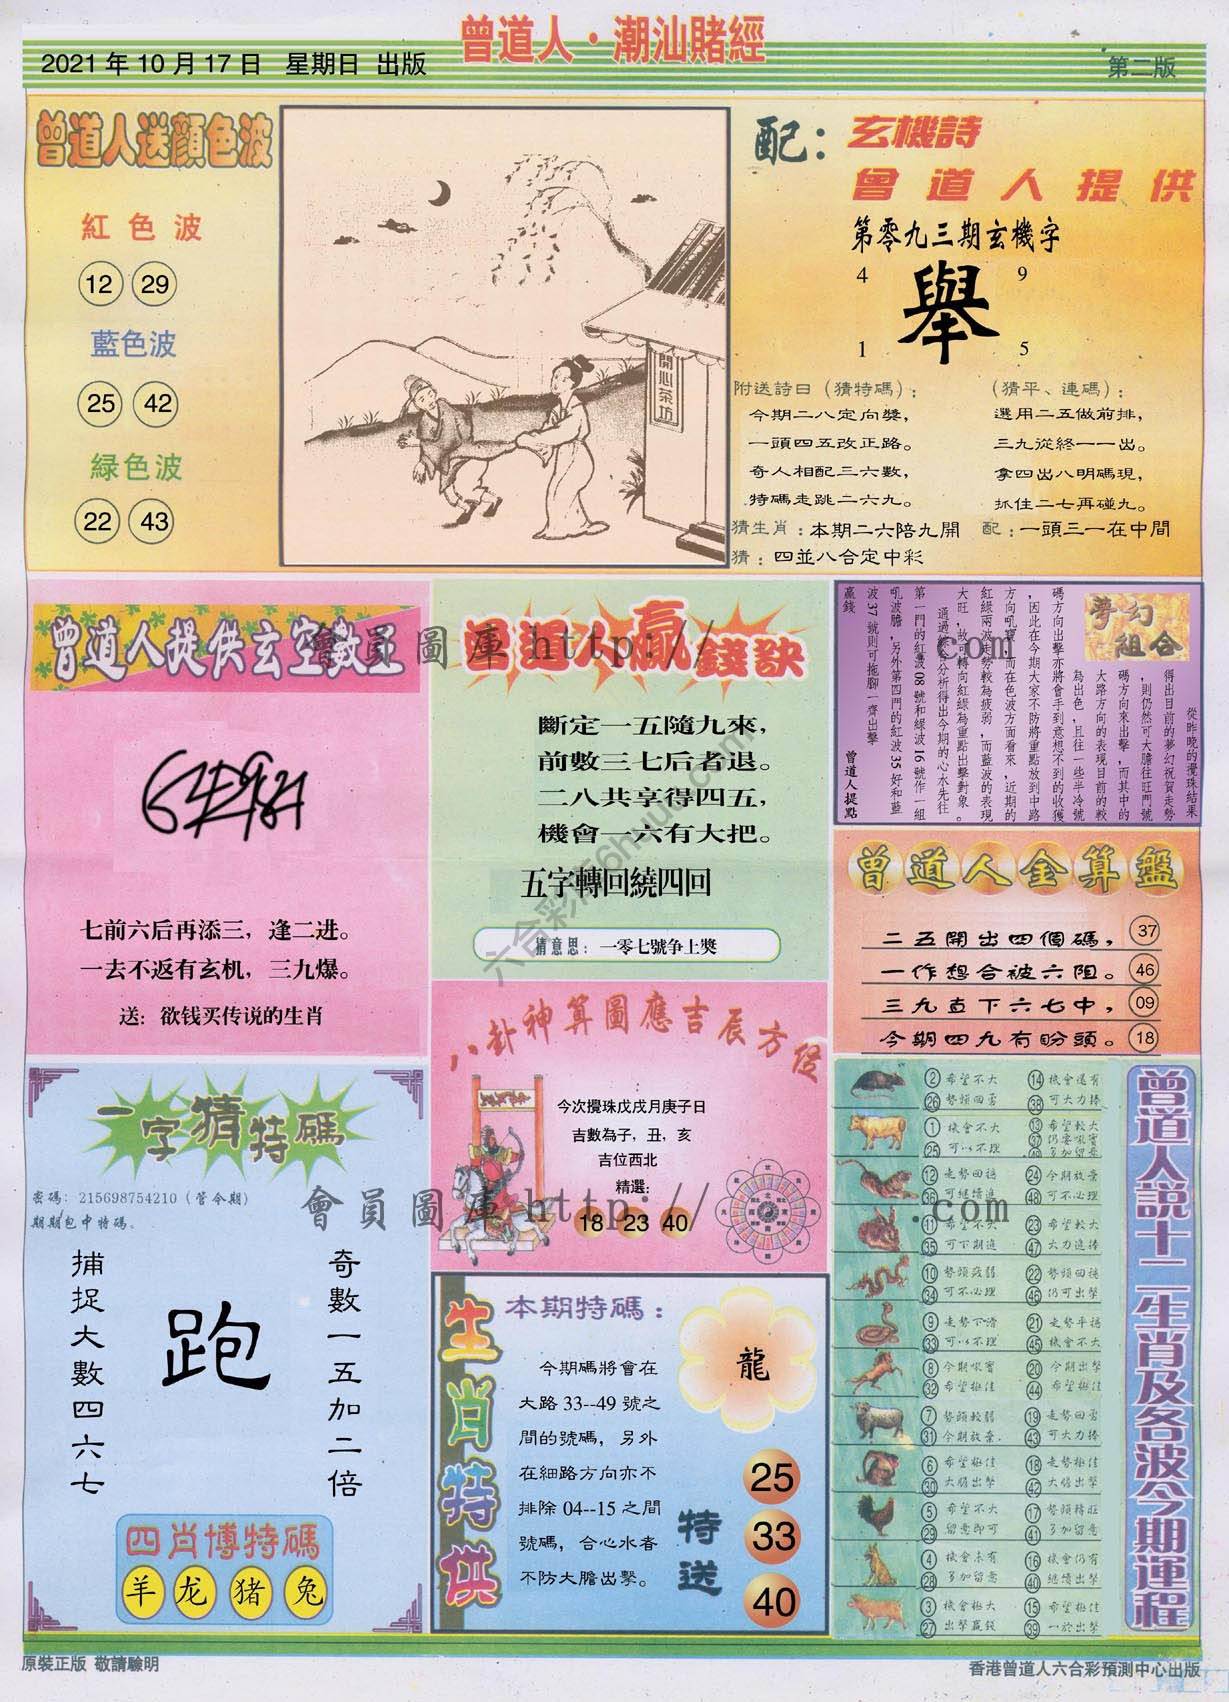 曾道人·潮汕賭經
2021 年 10 月 17 日 星期日 出版
第二版
曾道人送顔色波
紅色波
12 29
藍色波
25 42
緑色波
22 43
開心茶坊
配：
玄機詩
曾道人提供
第零九三期玄機字
4 9
舉
1 5
附送詩日（猜特碼）：
今期二八定向獎，
一頭四五改正路。
奇人相配三六數，
特碼走跳二六九。
（猜平、連碼）：
選用二五做前排，
三九從終一一出。
拿四出八明碼現，
抓住二七再碰九。
猜生肖：本期二六陪九開
配：一頭三一在中間
猜：四並八合定中彩
曾道人提供玄空數王
七前六后再添三，逢二进。
一去不返有玄机，三九爆。
送：欲钱买传说的生肖
曾道人贏錢訣
斷定一五隨九來，
前數三七后者退。
二八共享得四五，
機會一六有大把。
五字轉回繞四回
猜意思：一零七號争上獎
夢幻組合
從昨晚的攪珠結果
得出目前的夢幻祝賀走勢
，則仍然可大膽往旺門號
碼方向來出擊，而其中的
大路方向的表現目前的較
為出色，且往一些半冷號
碼方向出擊亦將會手到意想不到的收獲
，因此在今期大家不防將重點放到中路
方向吼寶，而在色波方面看來，近期的
紅緑兩波走勢較為疲弱，而藍波的表現
大旺，故可轉向紅緑為重點出擊對象。
通過綜合分析得出今期的心水先往
第一門的紅波 08 號和緑波 16 號作一組
吼波膽，另外第四門的紅波 35 好和藍
波 37 號則可拖腳一齊出擊
贏錢
曾道人提點
曾道人金算盤
二五開出四個碼， 37
一作想合被六阻。 46
三九直下六七中， 09
今期四九有盼頭。 18
八卦神算圖應吉辰方位
今次攪珠戊戌月庚子日
吉數為子，丑，亥
吉位西北
精選：
18 23 40
一字猜特碼
密碼：215698754210（管今期）
期期包中特碼。
捕捉大數四六七
跑
奇數一五加二倍
四肖博特碼
羊 龙 猪 兔
生肖特供
本期特碼：
今期碼將會在
大路 33--49 號之
間的號碼，另外
在細路方向亦不
排除 04--15 之間
號碼，合心水者
不防大膽出擊。
龍
特送
25
33
40
曾道人說十二生肖及各波今期運程
② 希望不大 ⑭ 機會還有
㉖ 勢頭回勇 ㊳ 可大力捧
① 機會不大 ⑬ 希望較大
㉕ 可以不理 ㊲ 仍要吼寶
㊾ 多加留意
⑫ 走勢回穩 ㉔ 今期放棄
㊱ 可継續進 ㊽ 可不必理
⑪ 希望不大 ㉓ 希望較大
㉟ 可下期進 ㊼ 大力進捧
⑩ 勢頭疲弱 ㉒ 勢頭回穩
㉞ 可不必理 ㊻ 仍可出擊
⑨ 走勢下滑 ㉑ 走勢平穩
㉝ 可以不理 ㊺ 機會不大
⑧ 今期吼寶 ⑳ 今期出擊
㉜ 希望極佳 ㊹ 希望極佳
⑦ 勢頭較弱 ⑲ 走勢回勇
㉛ 今期放棄. ㊸ 可大力捧
⑥ 希望極佳 ⑱ 走勢極佳
㉚ 大膽出擊 ㊷ 大膽出擊
⑤ 希望不大 ⑰ 勢頭精旺
㉙ 留意即可 ㊶ 多加留意
④ 機會未有 ⑯ 機會仍有
㉘ 多加留意 ㊵ 継續出擊
③ 機會極大 ⑮ 希望極佳
㉗ 出擊贏錢 ㊴ 一於出擊
會員圖庫 http://
.com
會員圖庫 http://
.com
原裝正版 敬請驗明
香港曾道人六合彩預測中心出版